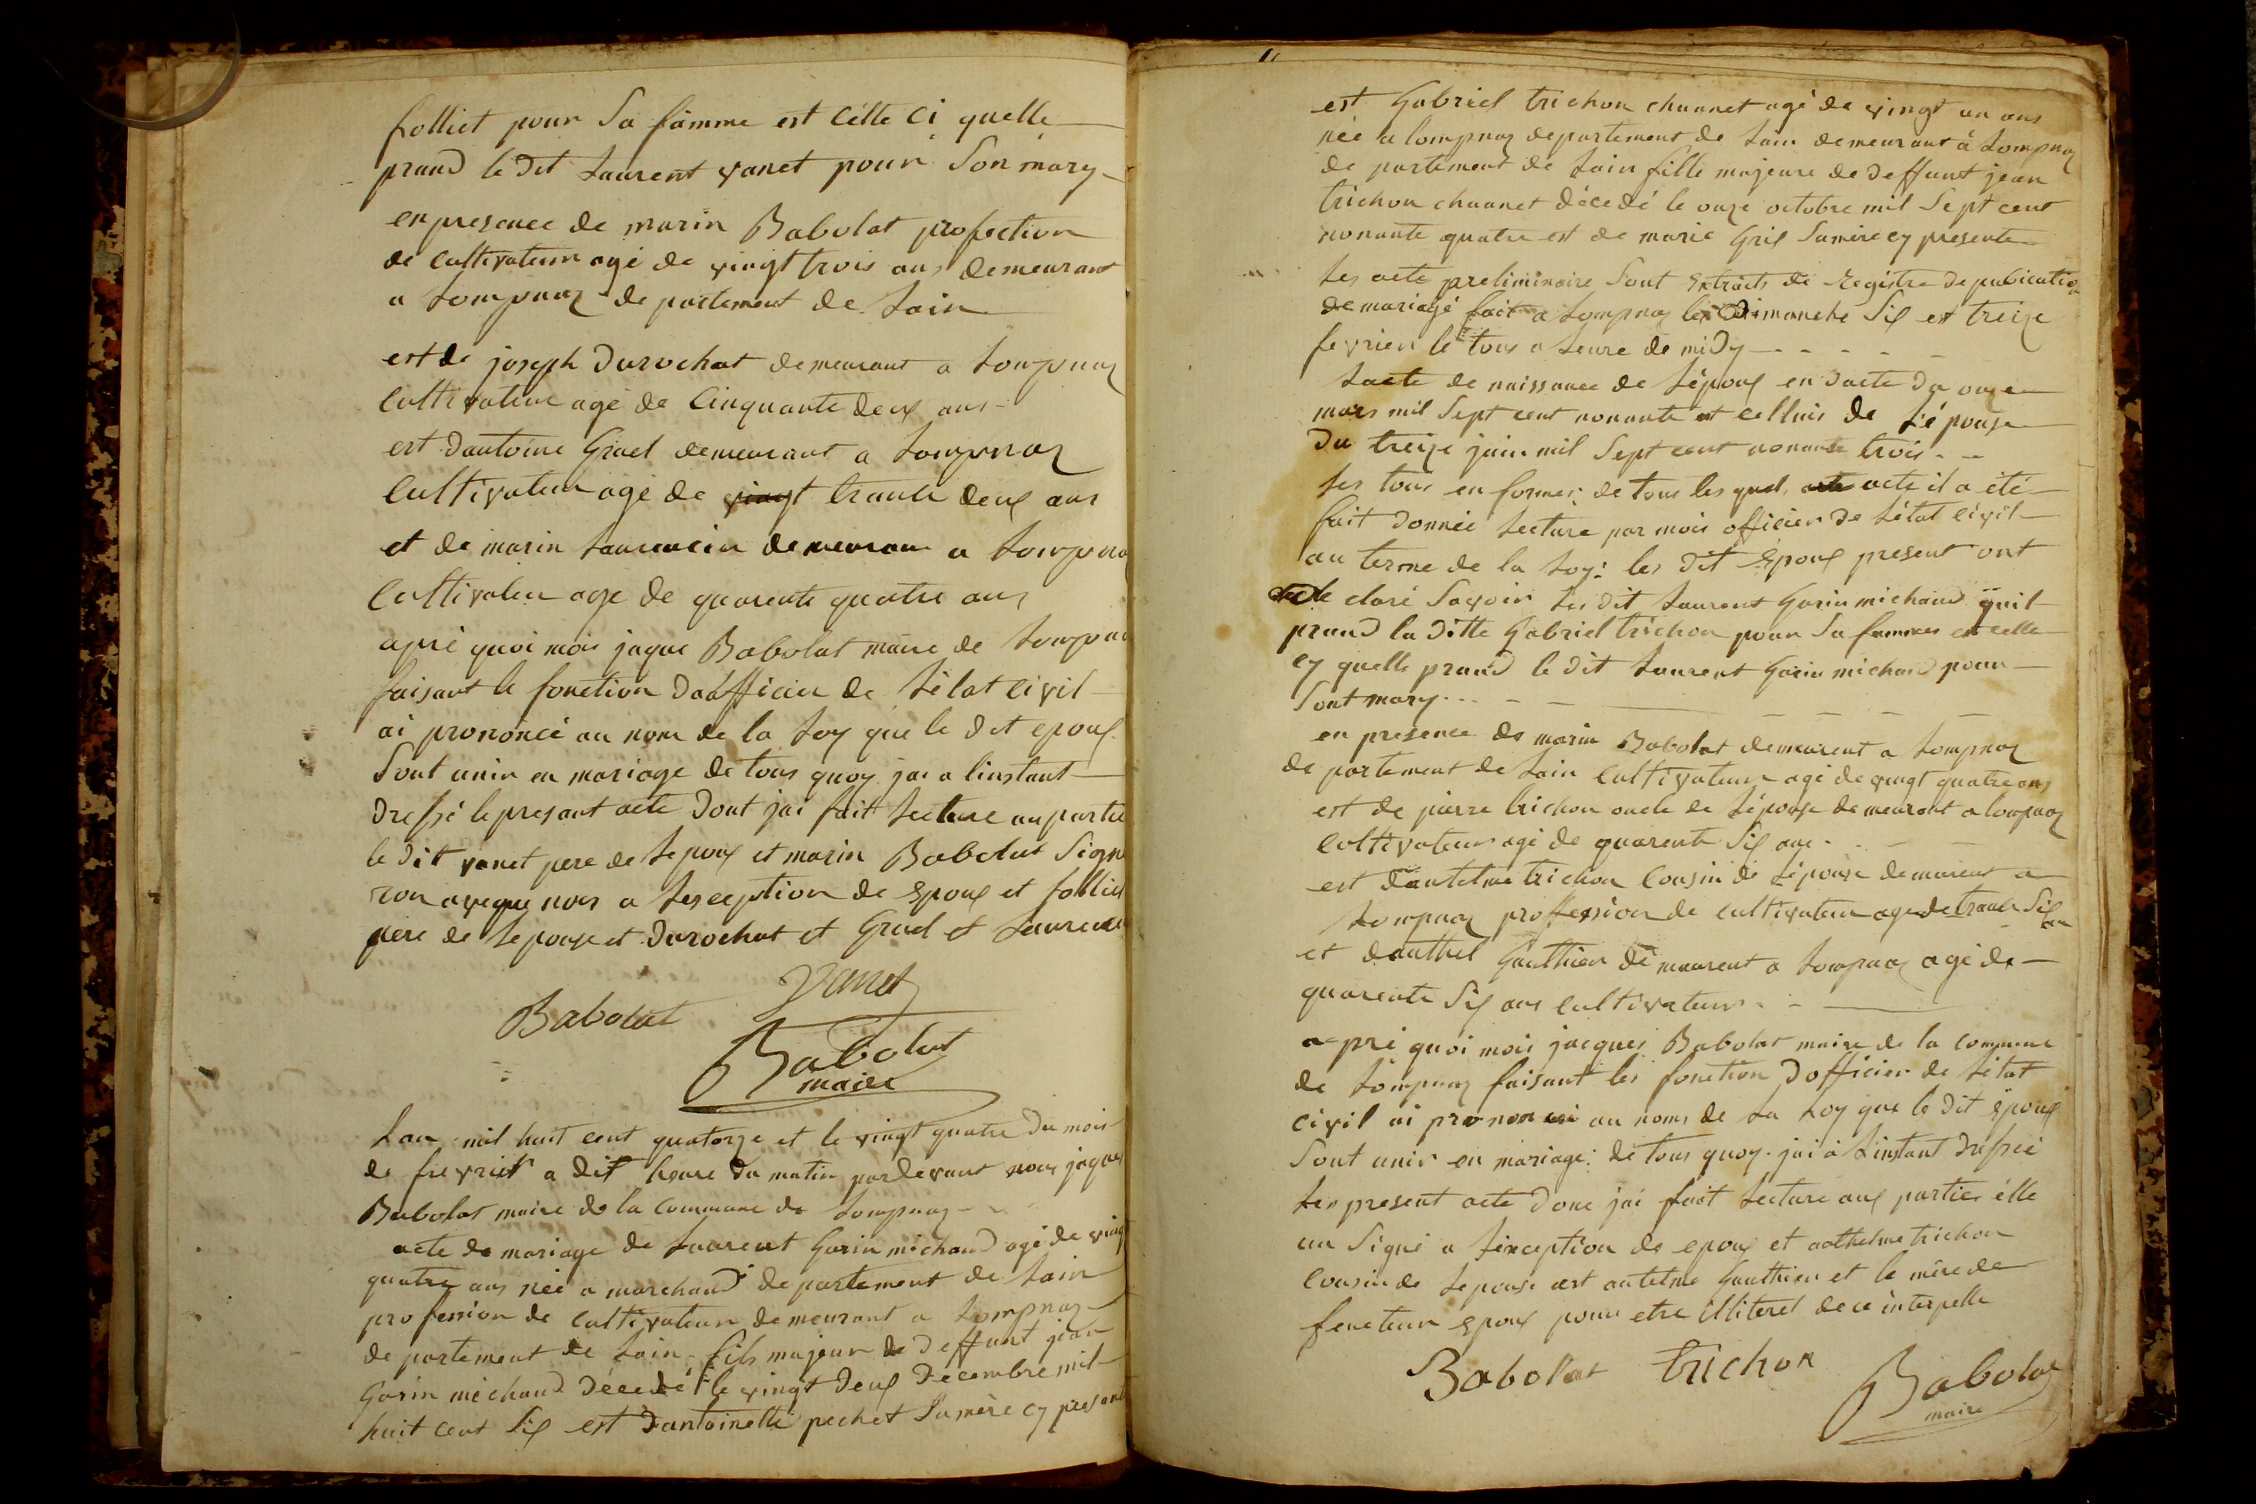 folliet pour sa famme est cétte ci quelle
prand le dit Laurent vanet pour son mary
en presence de marin Babolat profection
de cultivateur agé de vingt trois ans demeurant
a Lompnaz departement de Lain
est de joseph Durochat demeurant a Lompnaz
Cultivateur agé de Cinquante deux ans
est dantoine Grael demeurant a Lompnaz
Cultivateur agé de vingt trante deux ans
et de marin Laurencin demeuran a Lompna
Cultivateu age de quarente quatre ans
apré quoi moi jaque Babolat maire de Lompna
faisant le fonction doffficier de Létat civil
ai prononcé au nom de la Loy que le dit epoux
Sont unir en mariage de tous quoy jai a linstant
dressé le presant acte dont jai fait Lecture au partie
le dit vanet pere de Lepoux et marin Babolat Sign
ron aveque nous a Lesception de Epoux et folliet
pere de Lepouse et Durochat et Grael et Laurence
Vanet
Babolat
Babolat
maire
Lan mil huit cent quatorze et le vingt quatre du mois
de fievrier a dit heure du matin pardevant nous jaques
Babolat maire de la Commune de Lompnaz
acte de mariage de Laurent Gorin michaud agé de ving
quatre ans née a marchand departement de Lain
profession de Cultivateur demeurant a Lompnaz
de partement de Lain fils majeur de deffunt jean
Gorin michaud décedé le vingt deux decembre mil
huit cent Six est dantoinette pechet Sa mère cy presant
est Gabriel trichon chuanet agé de vingt un ans
née a lompnaz departement de Lain demeurant à Lompnaz
de partement de Lain fille majeure de deffunt jean
trichon chuanet décedé le onze octobre mil Sept cent
nonante quatre est de marie Gris Samère cy presente
Les acte preliminaire Sont Extraits de registre de pubication
de mariage fait a Lompnaz les Dimanche Six et treize
fevrier le tous a Leure de midy
Lacte de naissance de Lépoux en dacte du onze
mars mil Sept cent nonante et celluis de Lé pouse
Du treize juin mil Sept cent nonante trois
Les tous en formes de tous les quel acte acte il a été
fait donnée Lecture par mois officier de Létat civil
au terme de la Loy: les dit Epoux present ont
de claré Savoir Les dit Laurent Gorin michaud quil
prand la ditte Gabriel trichon pour Sa femmes et celle
cy quelle prand le dit Laurent Gorin michaud pour
Sont mary
en presence de marin Babolat demeurent a Lompnaz
de partement de Lain Cultivateur agé de vingt quatre ans
est de pierre trichon oncle de Lépouse demeurant a lompnaz
Cultivateur agé de quarente Six ans
est dantelme trichon Cousin de Lépouse demeurent a
Lompnaz proffession de cultivateur age de trante Six
an
et danthel Gauthier de meurent a Lompnaz agé de
quarente Six ans cultivateur
a pré quoi mois jacques Babolat maire de la commune
de Lompnaz faisant les fonction dofficier de Létat
civil ai prononcé au noms de La Loy que le dit époux
Sont unir en mariage: de tous quoy jai à Linstant dréssé
Les present acte donc jai fait Lecture aux parties élle
un Signé a Lexception de epoux et anthelme trichon
Cousin de Lepouse est antelme Gauthier et la mère de
feneteur epoux pour etre Illiteret de ce interpelle
Babolat trichon
Babolat
maire